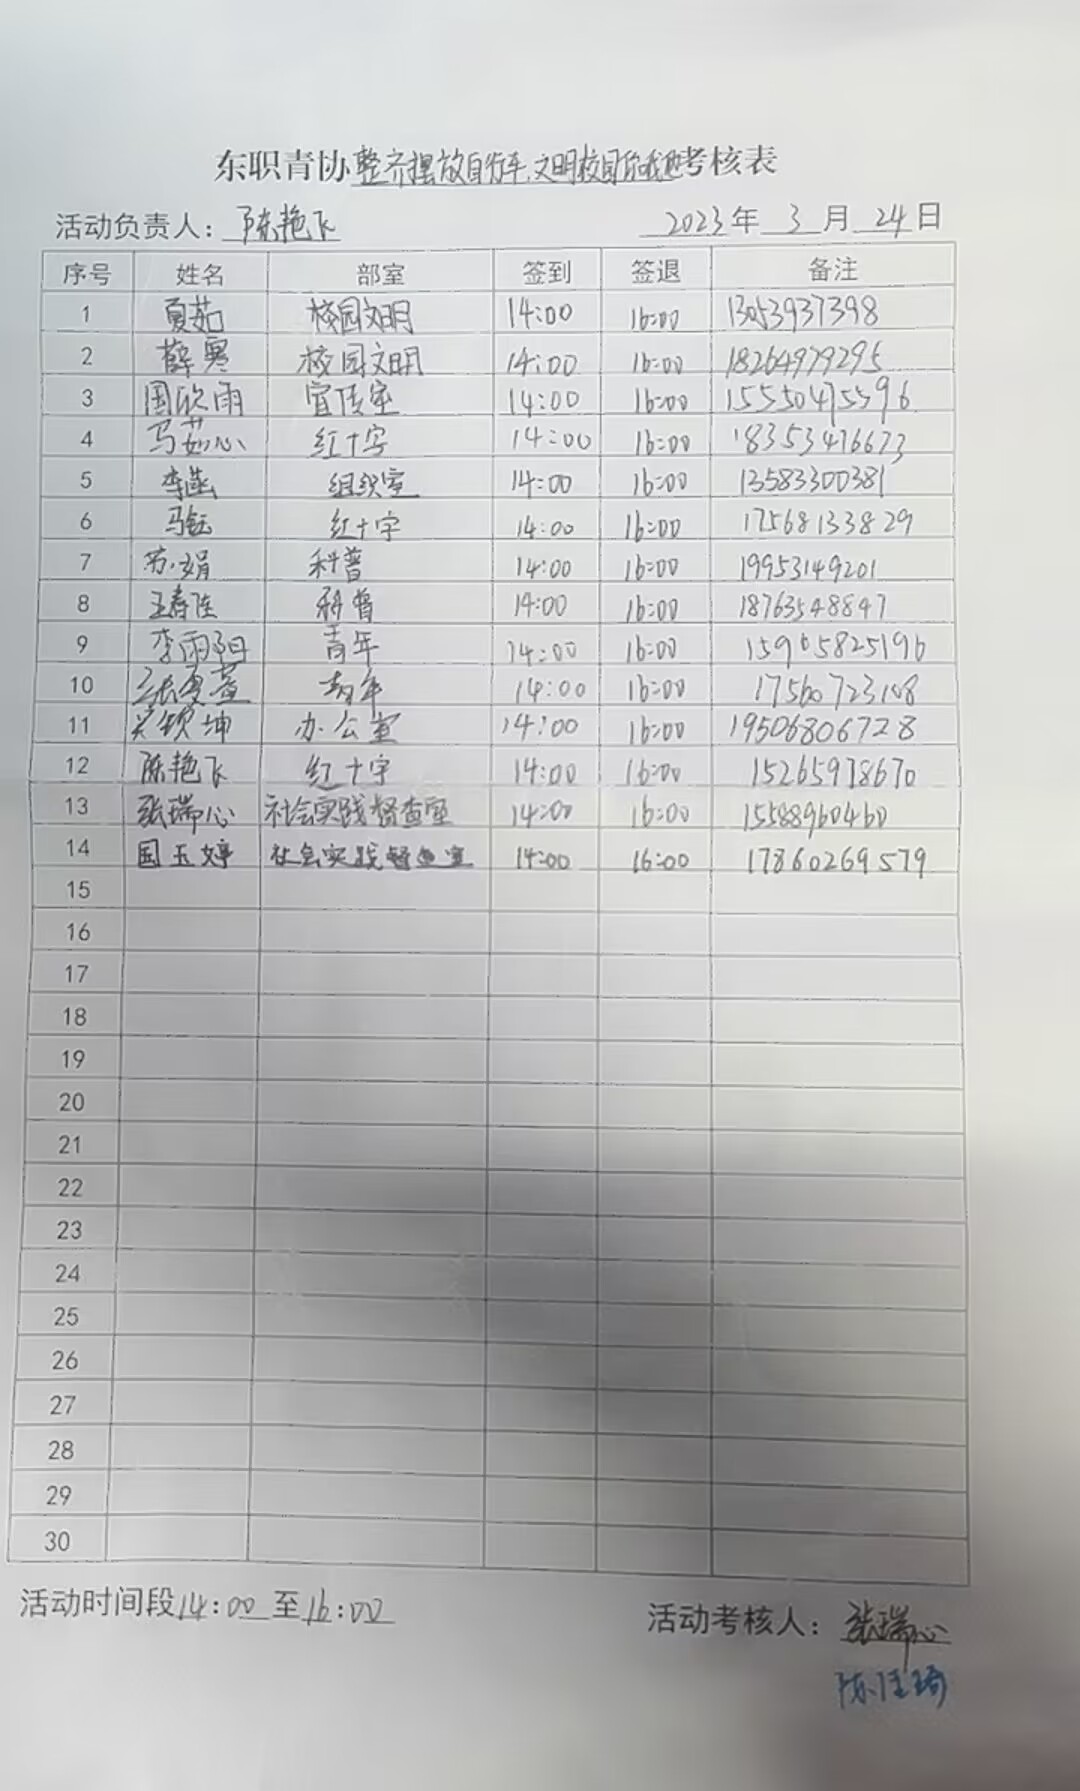 东职青协整齐摆放自行车,文明校园你我他考核表
活动负责人: 陈艳飞 2023年 3 月 24 日
序号 姓名 部室 签到 签退 备注
1 夏茹 校园文明 14:00 16:00 13053937398
2 薛寒 校园文明 14:00 16:00 18264979295
3 国欣雨 宣传室 14:00 16:00 15550475596
4 马茹心 红十字 14:00 16:00 18353476673
5 李菡 组织室 14:00 16:00 13583300381
6 马钰 红十字 14:00 16:00 17568133829
7 苏娟 科普 14:00 16:00 19953149201
8 王春佳 科普 14:00 16:00 18763548847
9 李雨阳 青年 14:00 16:00 15965825196
10 青年 14:00 16:00 17560723108
11 办公室 14:00 16:00 19506806728
12 陈艳飞 红十字 14:00 16:00 15265978670
13 张瑞心 社会实践督查室 14:00 16:00 15588960460
14 国玉婷 社会实践督查室 14:00 16:00 17860269579
15
16
17
18
19
20
21
22
23
24
25
26
27
28
29
30
活动时间段14:00至16:00 活动考核人: 张瑞心
陈佳琦